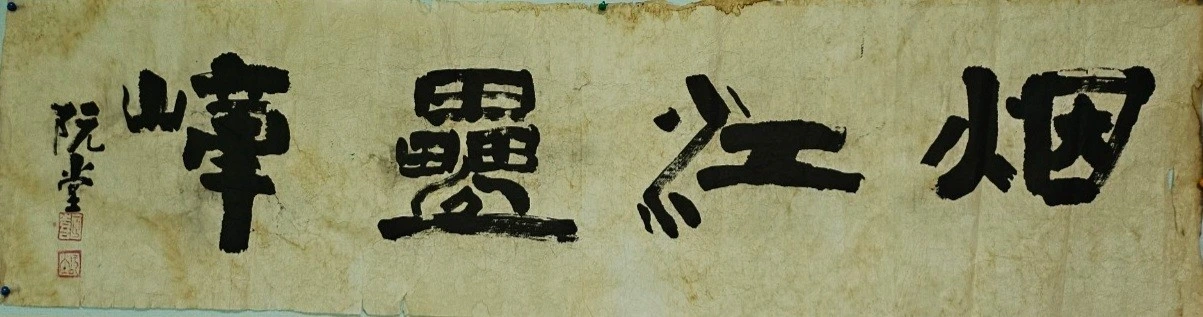 烟江疊嶂
阮堂